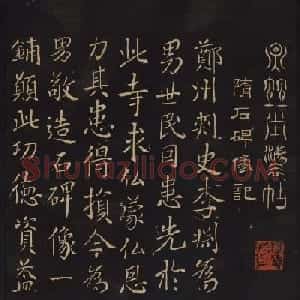 隋石碑像記
鄭州刺史李淵為
男世民因患先於
此寺求仏蒙仏恩
力其患得損今為
男敬造石碑像一
鋪願此功德資益
Shufaziliao.com